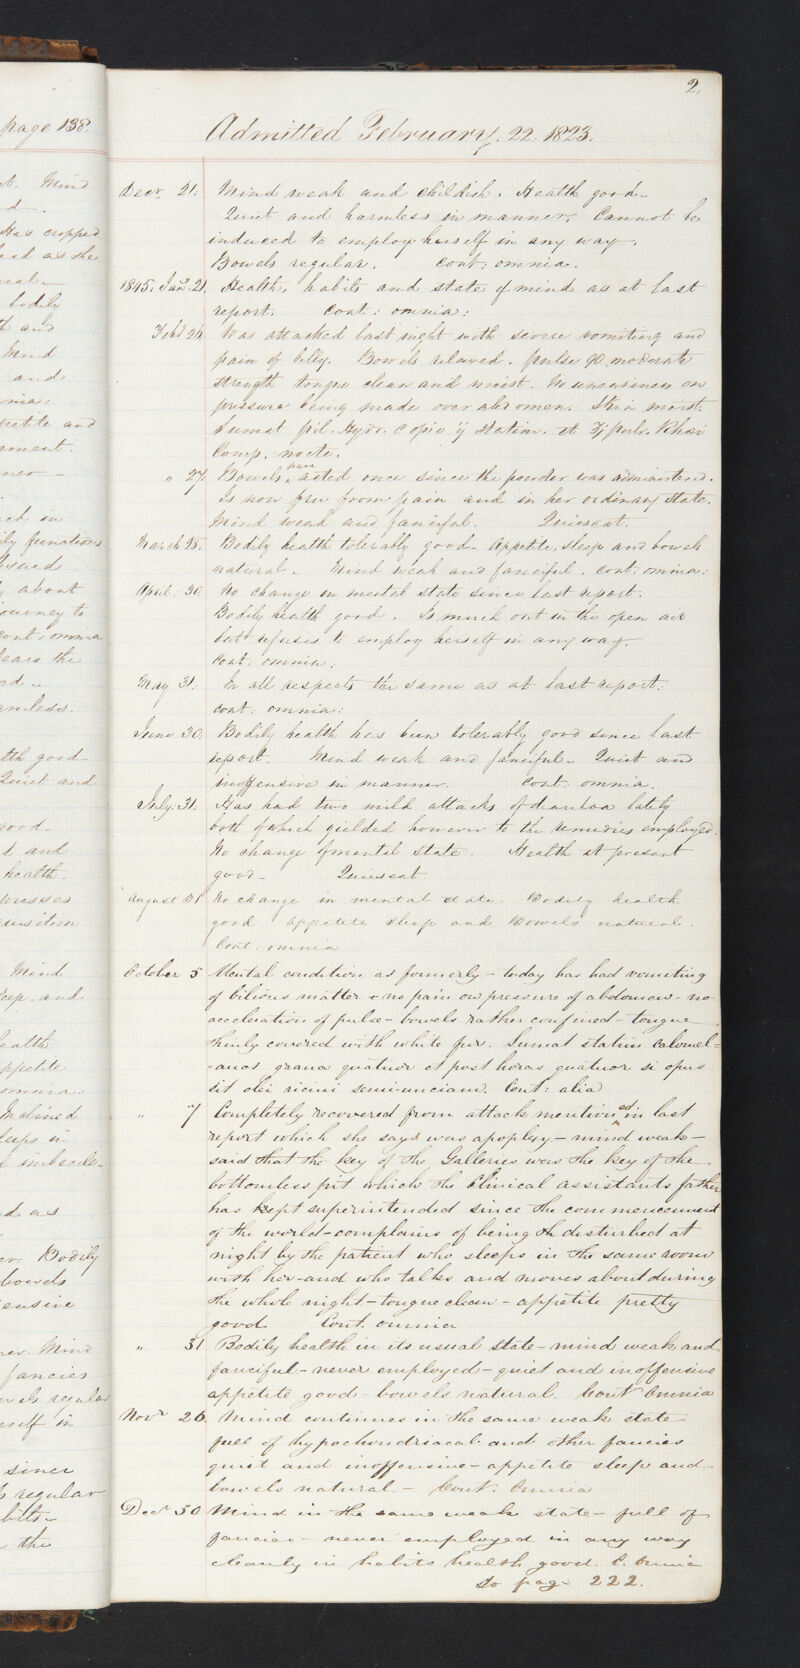 2.
Admitted February. 22. 1823.
Decr. 21. Mind weak and childish. Health good.
Quiet and harmless in manner. Cannot be
induced to employ herself in any way.
Bowels regular. Cont. omnia.
1845. Jany 21. Health, habits and state of mind as at last
report. Cont: omnia:
Feby 26 Was attacked last night with severe vomiting and
pain of belly. Bowels relaxed. pulse 90, moderate
strength tongue clean and moist. No uneasiness on
pressure being made over abdomen. Skin moist.
Sumat pil. Hydr. c opio ij statim. et Pulv. Rhei
Comp. nocte.
" 27. Bowels have acted once since the powder was administered.
Is now free from pain and in her ordinary state.
Mind weak and fanciful. Quiescat.
March 28. Bodily health tolerably good. Appetite, sleep and bowels
natural. Mind weak and fanciful. Cont: omnia:
April: 30. No change in mental state since last report.
Bodily health good. Is much out in the open air
but refuses to employ herself in any way.
Cont: omnia:
May 31. In all respects the same as at last report.
Cont: omnia:
June 30. Bodily health has been tolerably good since last
report. Mind weak and fanciful. Quiet and
inoffensive in manner. Cont: omnia.
July: 31. Has had two mild attacks of diarrhoea lately
both of which yielded however to the remedies employed.
No change of mental state. Health at present
good. Quiescat
August 31 No change in mental state. Bodily health
good. Appetite sleep and Bowels natural.
Cont: omnia
October 5 Mental condition as formerly - today has had vomiting
of bilious matter & no pain on pressure of abdomen - no
acceleration of pulse - bowels rather confined - tongue
thinly covered with white fur. Sumat statim calomel-
-anos grana quatuor et post horas quatuor si opus
sit olei ricini semi-unciam. Cont: alia
" 7 Completely recovered from attack mentioned in last
report which she says was apoplexy - mind weak -
said that the key of the Galleries was the key of the
bottomless pit which the Clinical assistants father
has kept superintended since the commencement
of the world - complains of being disturbed at
night by the patient who sleeps in the same room
with her - and who talks and moves about during
the whole night - tongue clean - appetite pretty
good. Cont. omnia
" 31 Bodily health in its usual state - mind weak and
fanciful - never employed - quiet and inoffensive
appetite good - bowels natural. Cont Omnia
Novr 26. Mind continues in the same weak state
full of hypochondriacal and other fancies
quiet and inoffensive - appetite sleep and
bowels natural. - Cont: Omnia
Decr 30 Mind in the same weak state - full of
fancies - never employed in any way
cleanly in habits health good. C. Omnia
To page 222.
page 138.
Mind
Has cropped
head as she
bodily
and
Mind
and
appetite and
functions
about
journey to
cont: omnia
harmless.
health good-
Quiet and
good-
and
health.
Mind
sleep. and
health
appetite
omnia:
Inclined
sleeps in
imbecile-
Bodily
bowels
Mind
fancies
bowels regular
herself in
since
regular
habits-
the